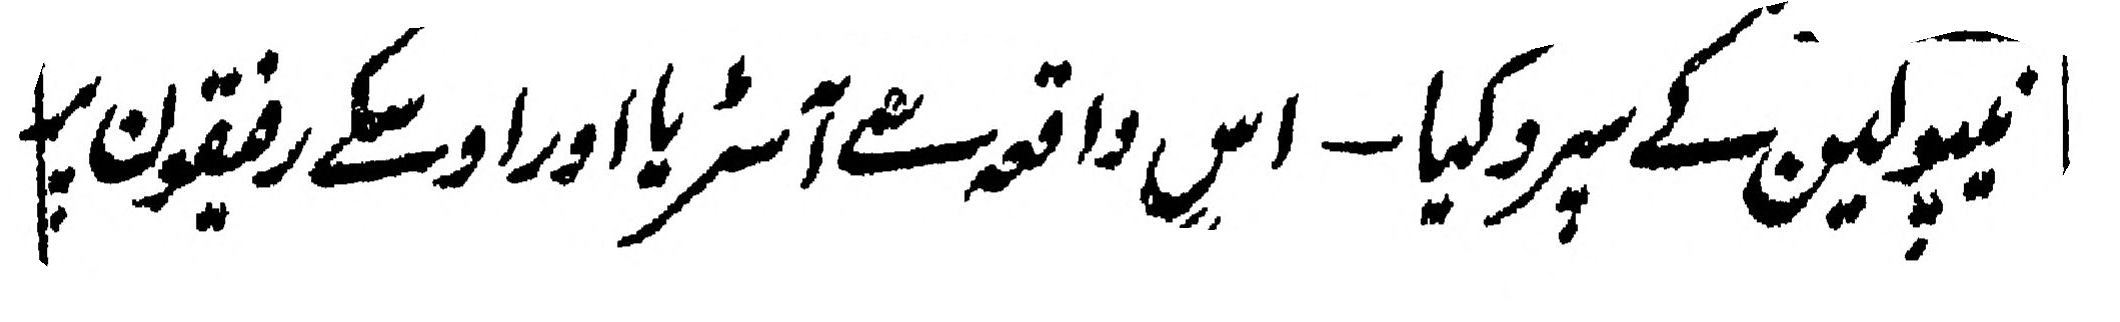 نیپولین کے سپرد کیا - اس واقعہ سے آسٹریا اور اوسکے رفیقون پر